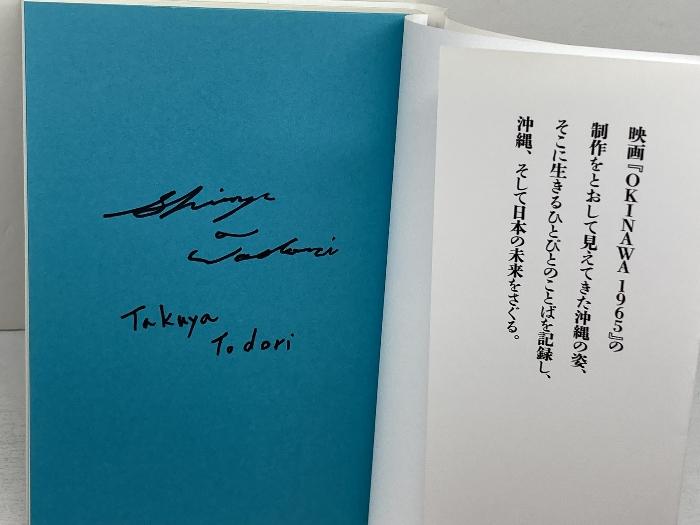 Takuya
Todori
映画『OKINAWA 1965』の
制作をとおして見えてきた沖縄の姿、
そこに生きるひとびとのことばを記録し、
沖縄、そして日本の未来をさぐる。